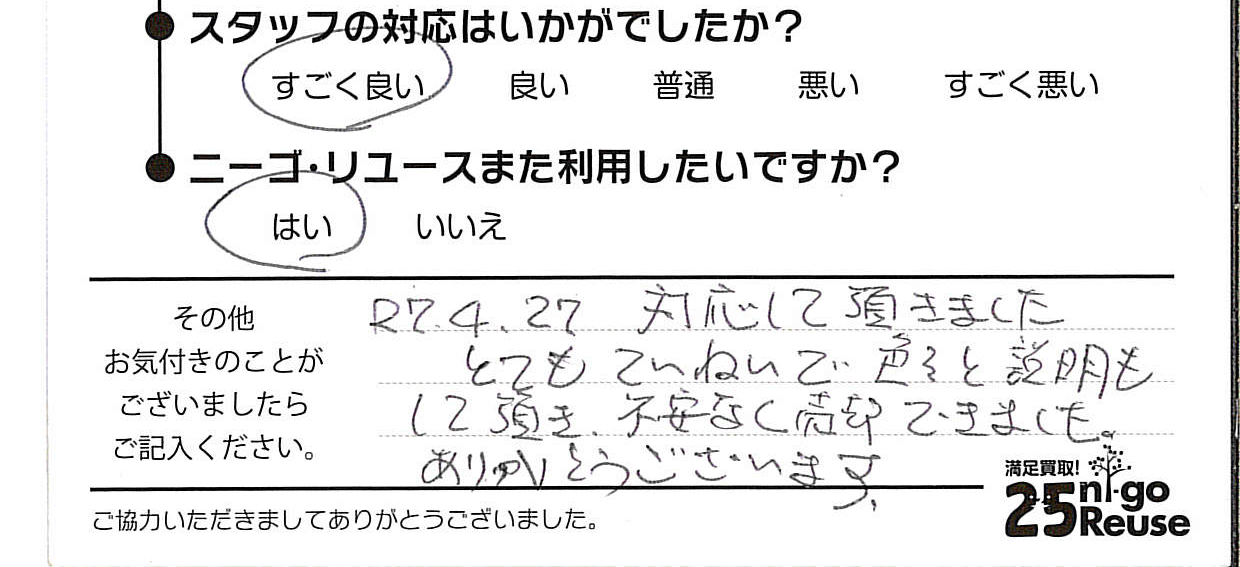 スタッフの対応はいかがでしたか？
すごく良い　良い　普通　悪い　すごく悪い
ニーゴ・リユースまた利用したいですか？
はい　いいえ
その他
お気付きのことが
ございましたら
ご記入ください。
R7.4.27 対応して頂きました
とても ていねいで 色々と説明も
して頂き、不安なく売却できました。
ありがとうございます。
満足買取!
25 ni-go
Reuse
ご協力いただきましてありがとうございました。